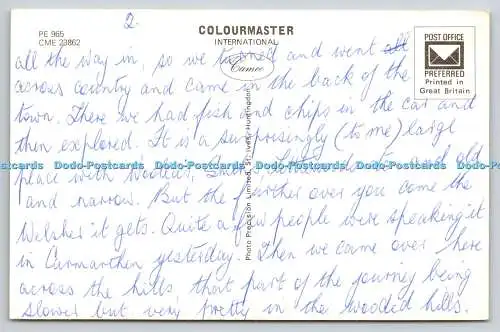 2.
PE 965
CME 23862
COLOURMASTER
INTERNATIONAL
Cameo
POST OFFICE
PREFERRED
Printed in
Great Britain
all the way in, so we turned and went all
across country and came in the back of the
town. There we had fish and chips in the car and
then explored. It is a surprisingly (to me) large
place with
old
and narrow. But the further over you come the
Welsher it gets. Quite a few people were speaking it
in Carmarthen yesterday. Then we came over here
across the hills that part of the journey being
slower but very pretty in the wooded hills.
Photo Precision Limited, St. Ives, Huntingdon
Dodo-Postcards Dodo-Postcards Dodo-Postcards Dodo-Postcards Dodo-Postcards